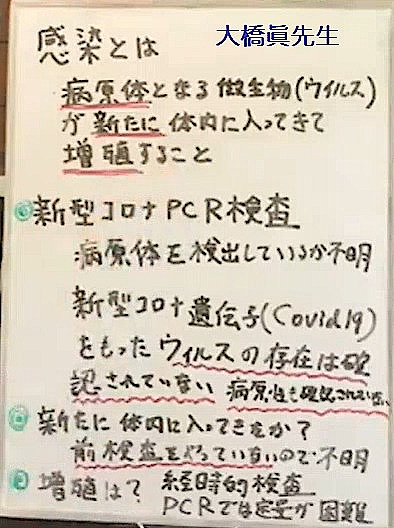 大橋眞先生
感染とは
病原体となる微生物(ウイルス)
が新たに体内に入ってきて
増殖すること
新型コロナPCR検査
病原体を検出しているか不明
新型コロナ遺伝子(Covid19)
をもったウィルスの存在は確
認されていない 病原性も確認されていない
新たに体内に入ってきたか?
前検査をやっていないので不明
増殖は? 経時的検査
PCRでは定量が困難